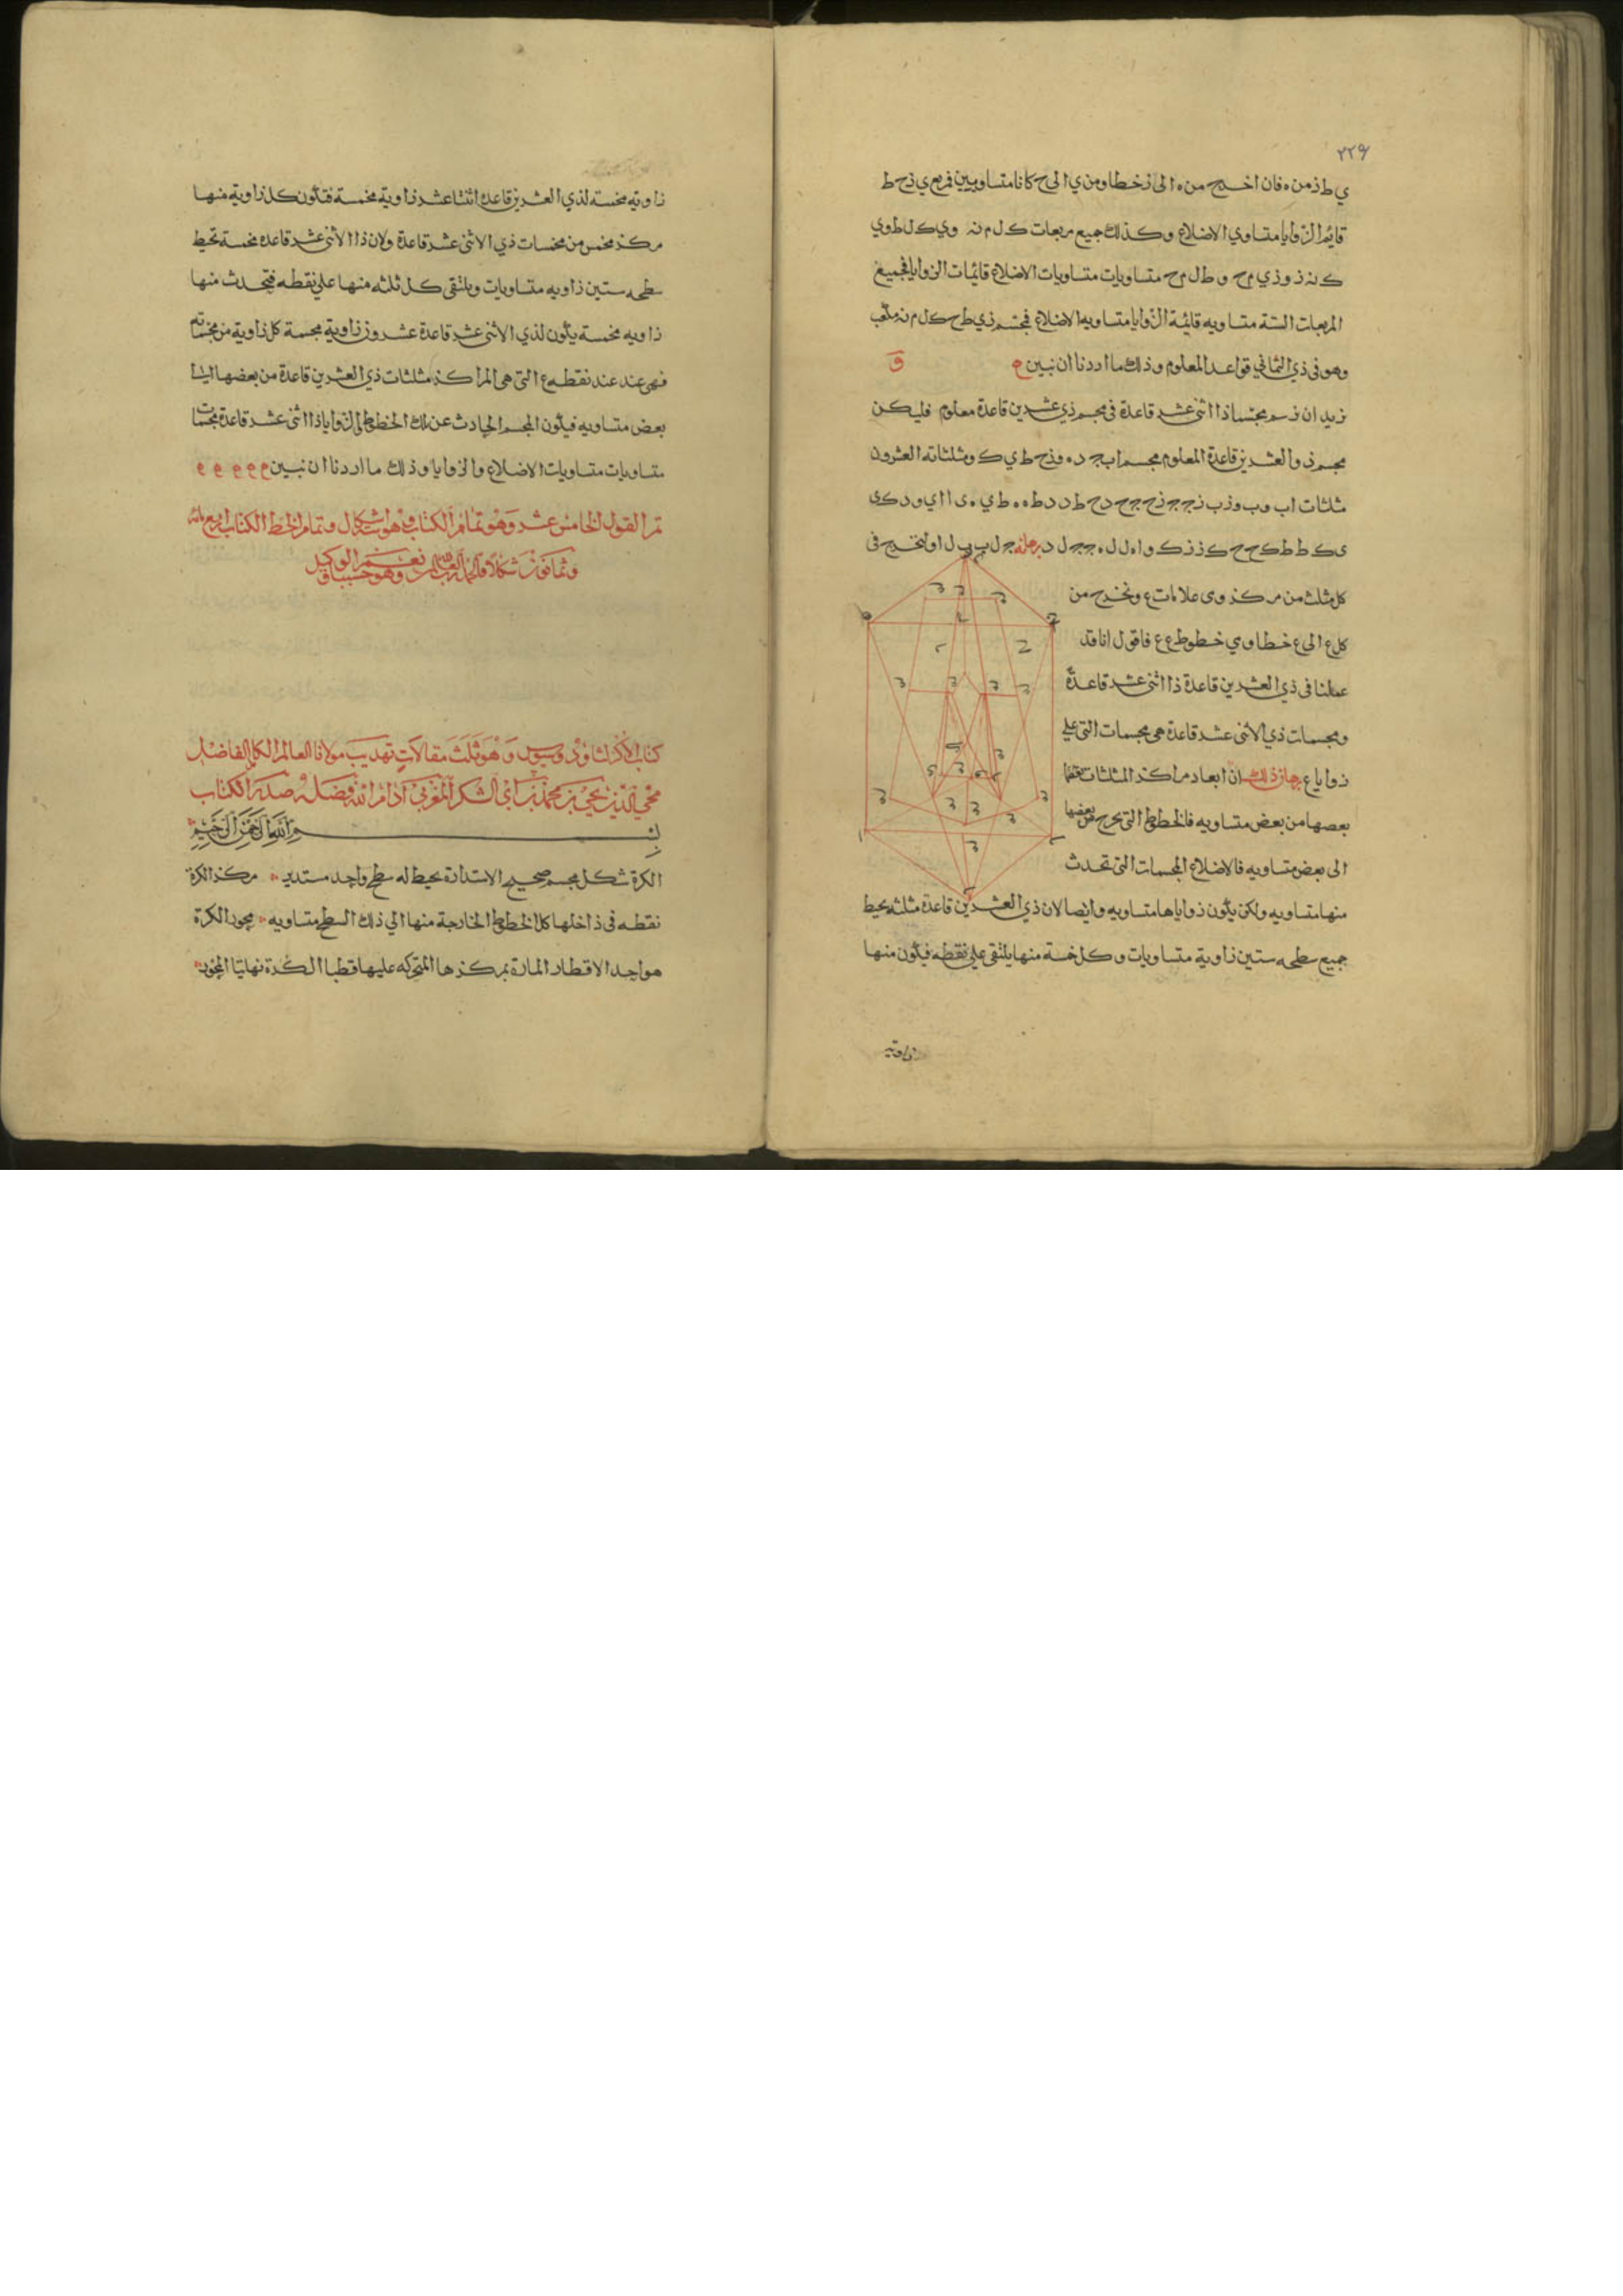 ٢٢٩
ي ط ز من ه فان اخرج من ه الى ز خطا ومن ي الى ح كانا متساويين فمربع ي ز ح ط
قايم الزوايا متساوي الاضلاع وكذلك جميع مربعات ك ل م نه وي ك ل ط وي
ك نه ز وزي م ح وط ل م ح متساويات متساويات الاضلاع قائمات الزوايا فجميع
المربعات الستة متساويه قائمة الزوايا متساويه الاضلاع فمجسم زي ط ح ك ل م نه مكعب
وهو فى ذي الثماني قواعد المعلوم وذلك ما اردنا ان نبين
نريد ان نرسم مجسما ذا اثنى عشر قاعدة فى مجسم ذي عشرين قاعدة معلوم فليكن
مجسم ذو العشرين قاعدة المعلوم مجسم اب ج د ه وزح ط ي ك ومثلثاته العشرون
مثلثات اب وب وزب زج ج زح ج ح دح ط دد ط ه ه ط ي ه ى ا اي و ر ك ى
ى ك ط ط ك ح ح ك ز ز ك و اه ل ل ه ج ج ل د ج ل ب ب ل ا ولنخرج فى
كل مثلث من مركزه وى علامات ع ونخرج من
كل ع الى ع خطا وي خطوط ع ع فاقول انا قد
عملنا فى ذي العشرين قاعدة ذا اثنى عشر قاعدة
ومجسمات ذي الاثنى عشر قاعدة هى مجسمات التى على
زوايا ع برهان ذلك ان ابعاد مراكز المثلثات
بعضها من بعض متساويه فالخطوط التى تخرج من بعضها
الى بعض متساويه فالاضلاع المجسمات التى تحدث
منها متساويه ولكن يكون زواياها متساويه وايضا لان ذي العشرين قاعدة مثلثه يحيط
جميع سطحه ستين زاوية متساويات وكل خمسة منها يلتقى على نقطه فيكون منها
زاوية
زاويه مخمسة لذي العشرين قاعدة اثنتا عشر زاوية مخمسة فتكون كل زاوية منها
مركز مخمس من مخمسات ذي الاثنى عشر قاعدة ولان ذا الاثنى عشر قاعدة مخمسة تحيط
سطحه ستين زاويه متساويات ويلتقى كل ثلثه منها على نقطه فتحدث منها
زاويه مخمسة يكون لذي الاثنى عشر قاعدة عشرون زاوية مجسمة كل زاوية من مخمساته
فهى عند عند نقطه ع التى هى المراكز مثلثات ذي العشرين قاعدة من بعضها الى
بعض متساويه فيكون المجسم الحادث عن تلك الخطوط الى الزوايا ذا اثنى عشر قاعدة مخمسات
متساويات متساويات الاضلاع والزوايا وذلك ما اردنا ان نبين
تم القول الخامس عشر وهو تمام الكتاب وهو ستة اشكال وتمام الخط الكتاب اربع مائه
وثمانون شكلا والحمد لله رب العالمين وهو حسبنا ونعم الوكيل
كتاب الاكر لثاوذوسيوس وهو ثلث مقالات تهذيب مولانا العالم الكامل الفاضل
محي الدين يحيى بن محمد بن ابى الشكر المغربي ادام الله فضله صدر الكتاب
بسم الله الرحمن الرحيم
الكرة شكل مجسم صحيح الاستدارة يحيط له سطح واحد مستدير مركز الكرة
نقطه فى داخلها كل الخطوط الخارجة منها الي ذلك السطح متساويه محور الكرة
هو احد الاقطار المارة بمركزها المتحركه عليها قطبا الكرة نهايتا المحور